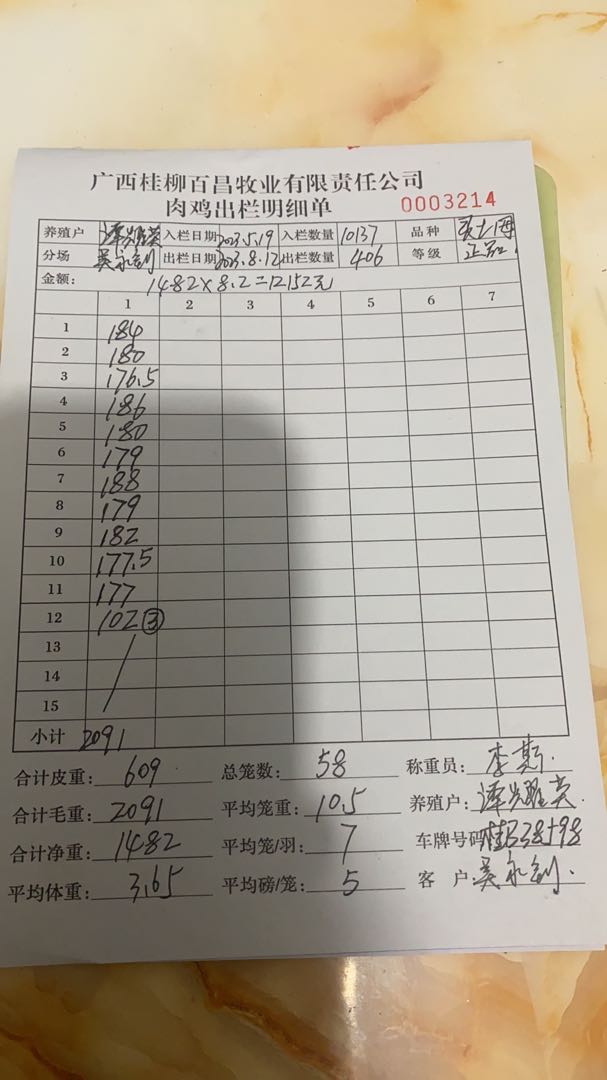 广西桂柳百昌牧业有限责任公司
肉鸡出栏明细单 0003214
养殖户 入栏日期 2023.5.19 入栏数量 10137 品种
分场 吴永钊 出栏日期 2023.8.12 出栏数量 406 等级 正品
金额: 1482×8.2=12152元
1 2 3 4 5 6 7
1 184
2 180
3 176.5
4 186
5 180
6 179
7 188
8 179
9 182
10 177.5
11 177
12 102 ③
13
14
15
小计 2091
合计皮重: 609 总笼数: 58 称重员: 李斯
合计毛重: 2091 平均笼重: 10.5 养殖户:
合计净重: 1482 平均笼/羽: 7 车牌号码
平均体重: 3.65 平均磅/笼: 5 客 户: 吴永钊